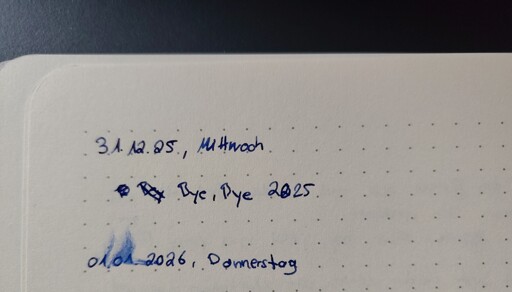 31.12.25, Mittwoch
Bye, Bye 2025
01.01.2026, Donnerstag